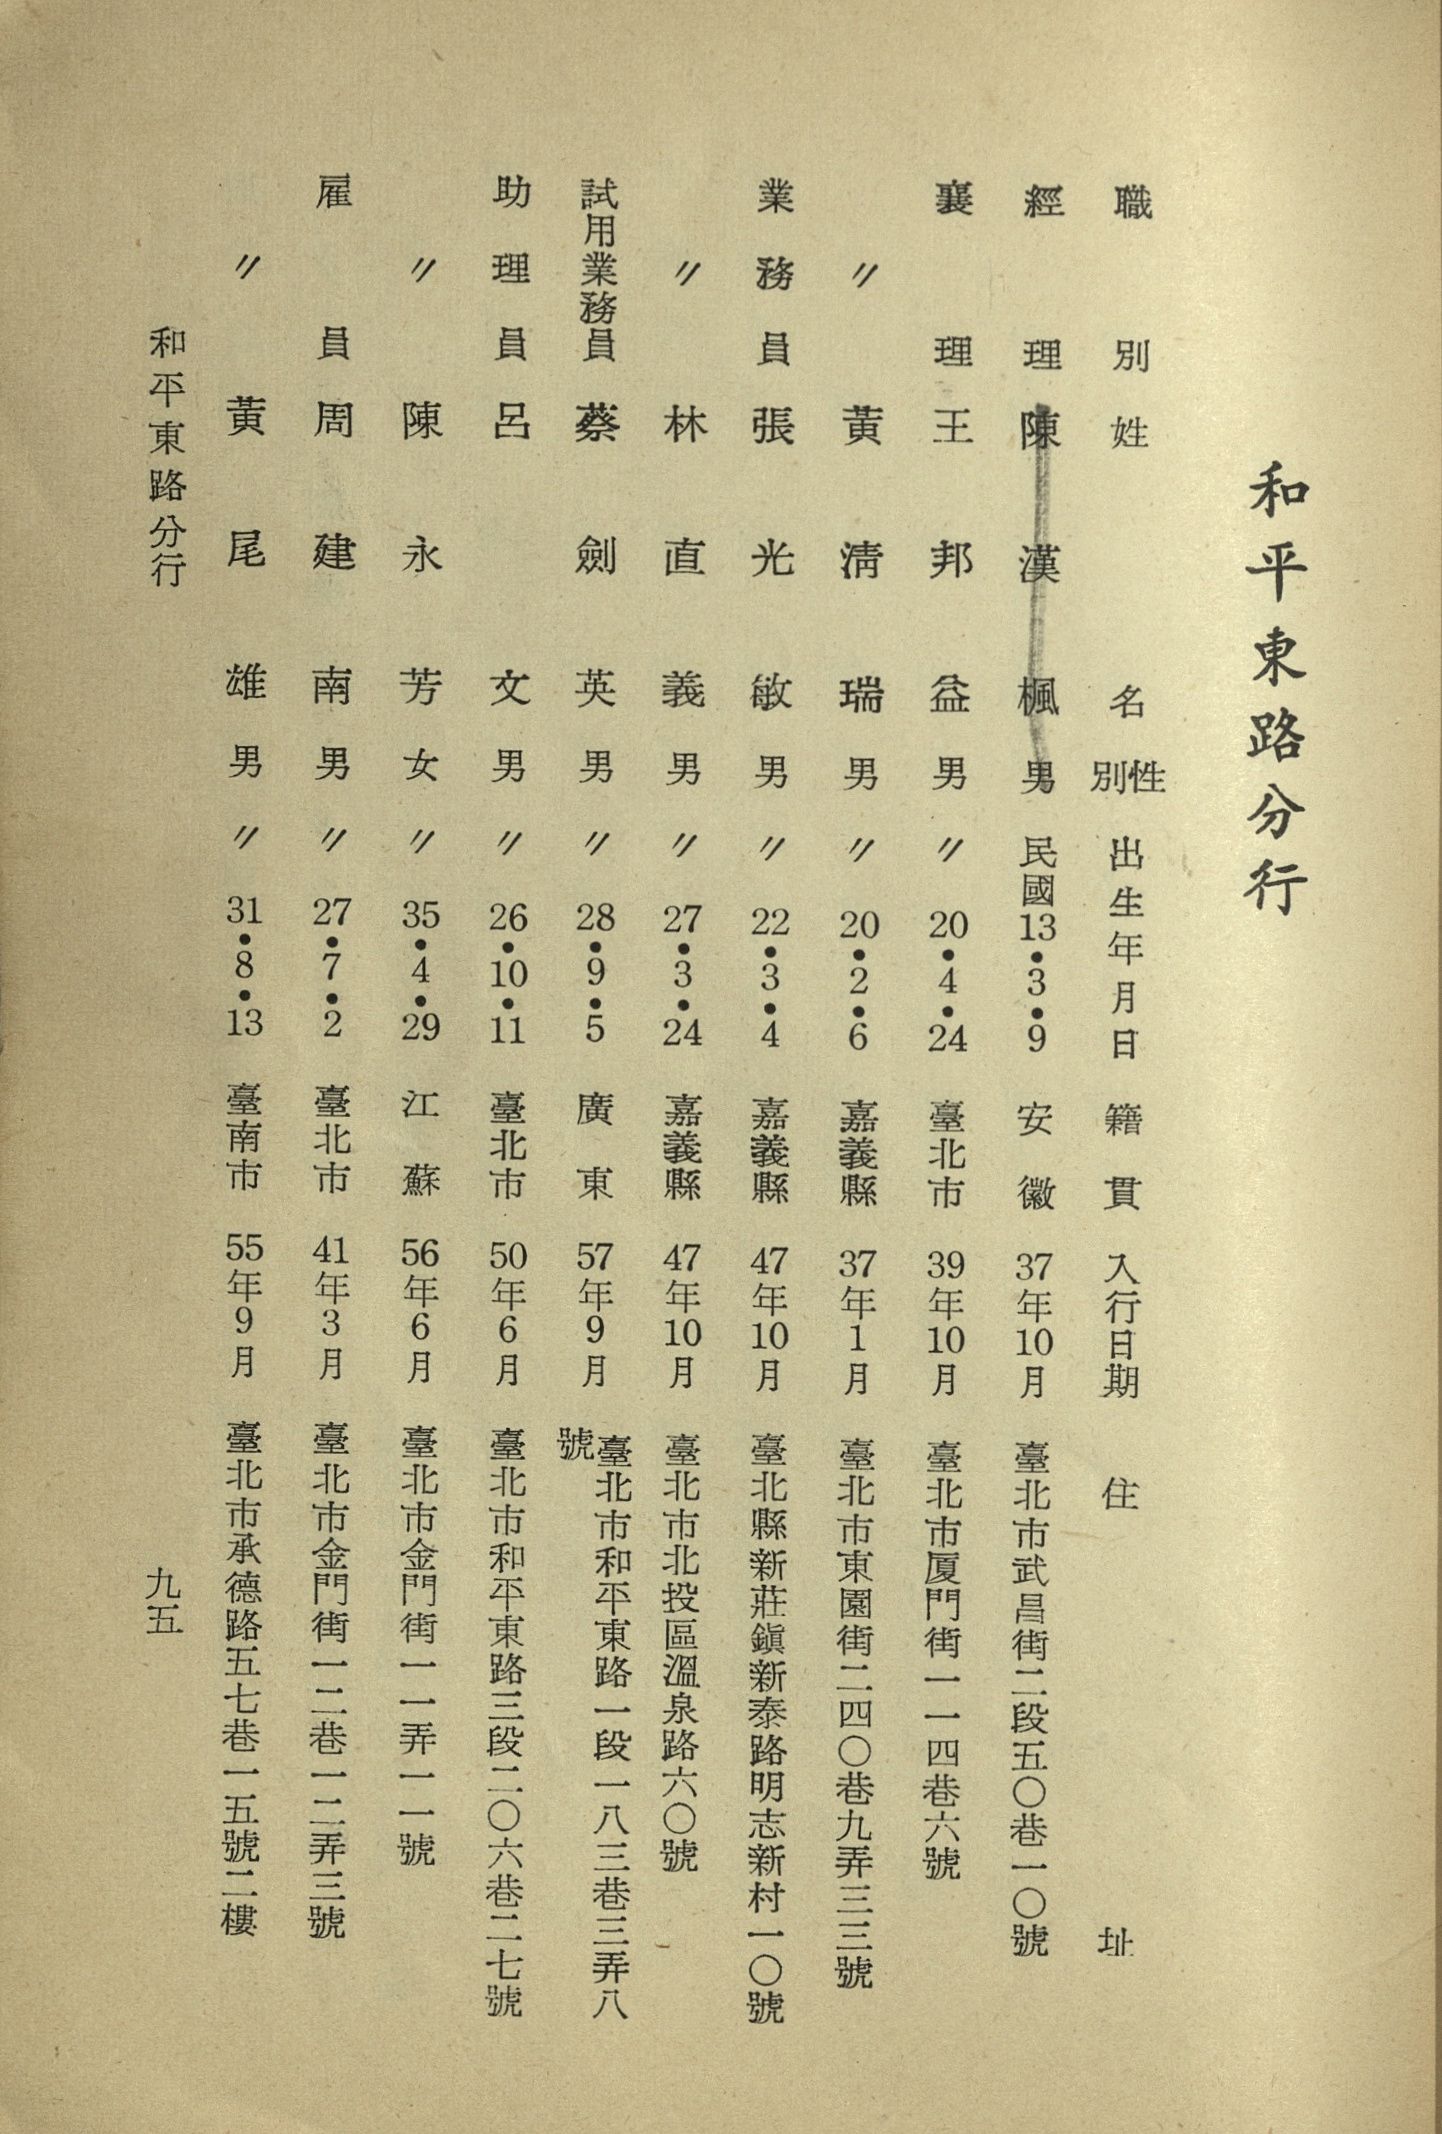 和平東路分行
職別 姓名 性別 出生年月日 籍貫 入行日期 住址
經理 陳漢楓 男 民國13•3•9 安徽 37年10月 臺北市武昌街二段五〇巷一〇號
襄理 王邦益 男 〃20•4•24 臺北市 39年10月 臺北市厦門街一一四巷六號
〃 黃淸瑞 男 〃20•2•6 嘉義縣 37年1月 臺北市東園街二四〇巷九弄三三號
業務員 張光敏 男 〃22•3•4 嘉義縣 47年10月 臺北縣新莊鎭新泰路明志新村一〇號
〃 林直義 男 〃27•3•24 嘉義縣 47年10月 臺北市北投區溫泉路六〇號
試用業務員 蔡劍英 男 〃28•9•5 廣東 57年9月 臺北市和平東路一段一八三巷三弄八
號
助理員 呂文 男 〃26•10•11 臺北市 50年6月 臺北市和平東路三段二〇六巷二七號
〃 陳永芳 女 〃35•4•29 江蘇 56年6月 臺北市金門街一一弄一一號
雇員 周建南 男 〃27•7•2 臺北市 41年3月 臺北市金門街一二巷一二弄三號
〃 黃尾雄 男 〃31•8•13 臺南市 55年9月 臺北市承德路五七巷一五號二樓
和平東路分行
九五